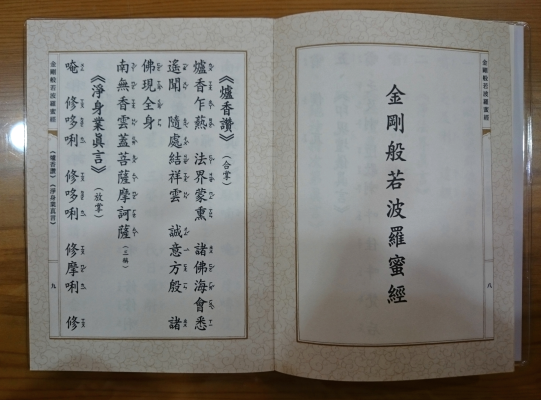 金剛般若波羅蜜經
金剛般若波羅蜜經
八
《爐香讚》(合掌)
爐香乍爇 法界蒙熏 諸佛海會悉
遙聞 隨處結祥雲 誠意方殷 諸
佛現全身
南無香雲蓋菩薩摩訶薩(三稱)
《淨身業真言》(放掌)
唵 修哆唎 修哆唎 修摩唎 修
金剛般若波羅蜜經
《爐香讚》《淨身業真言》
九